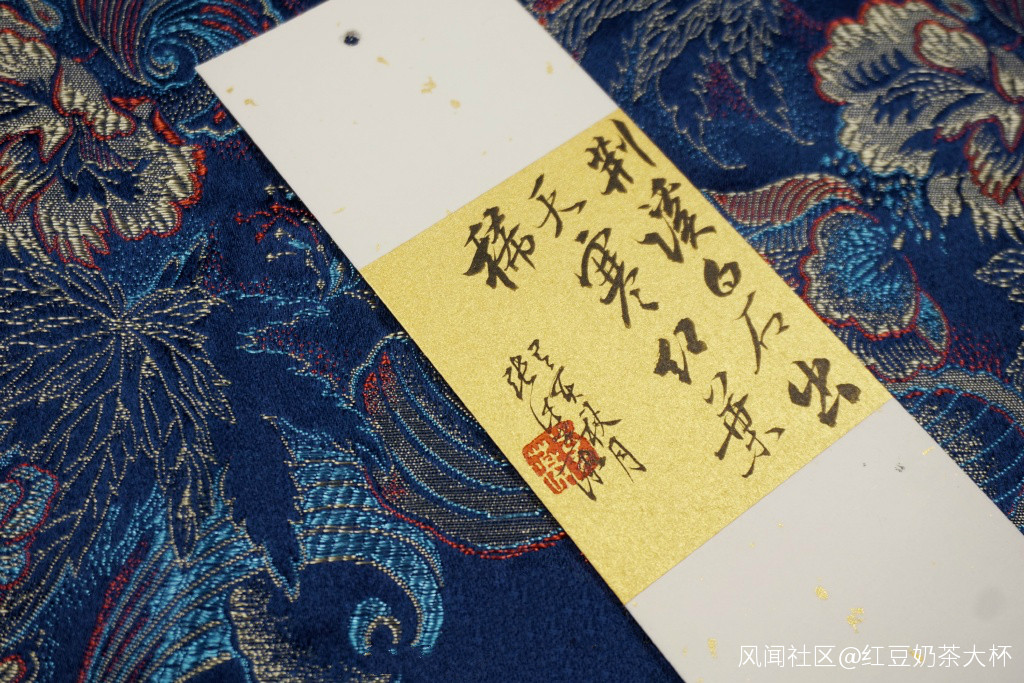 荆溪白石出
天寒红葉
稀
己亥秋月
风闻社区@红豆奶茶大杯